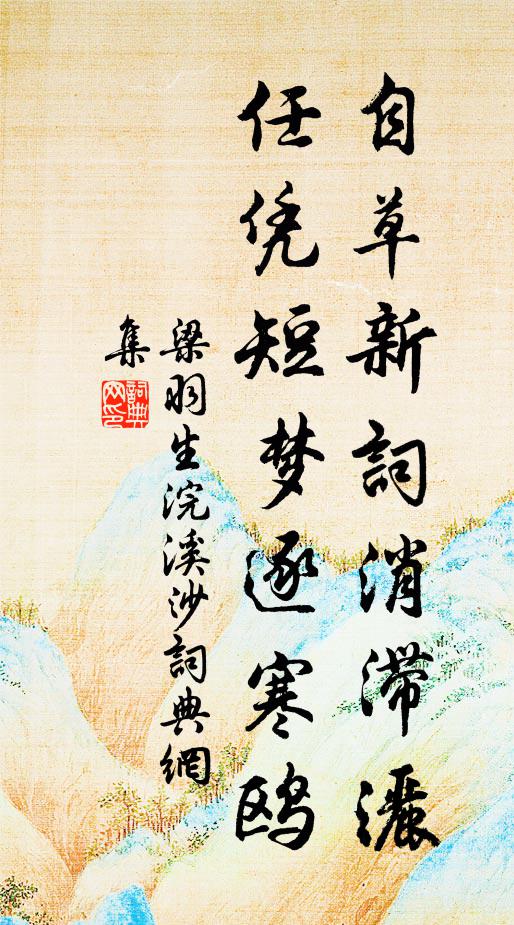 自草新詞消滞灑
任凭短梦逐寒鸥
梁羽生浣溪沙詞典網
集
詞典
网印